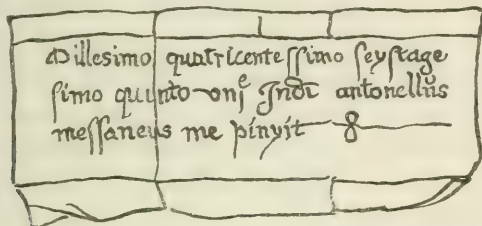 Millesimo quatricentessimo sexstage
simo quinto viijᵉ Indi antonellus
messaneus me pinxit